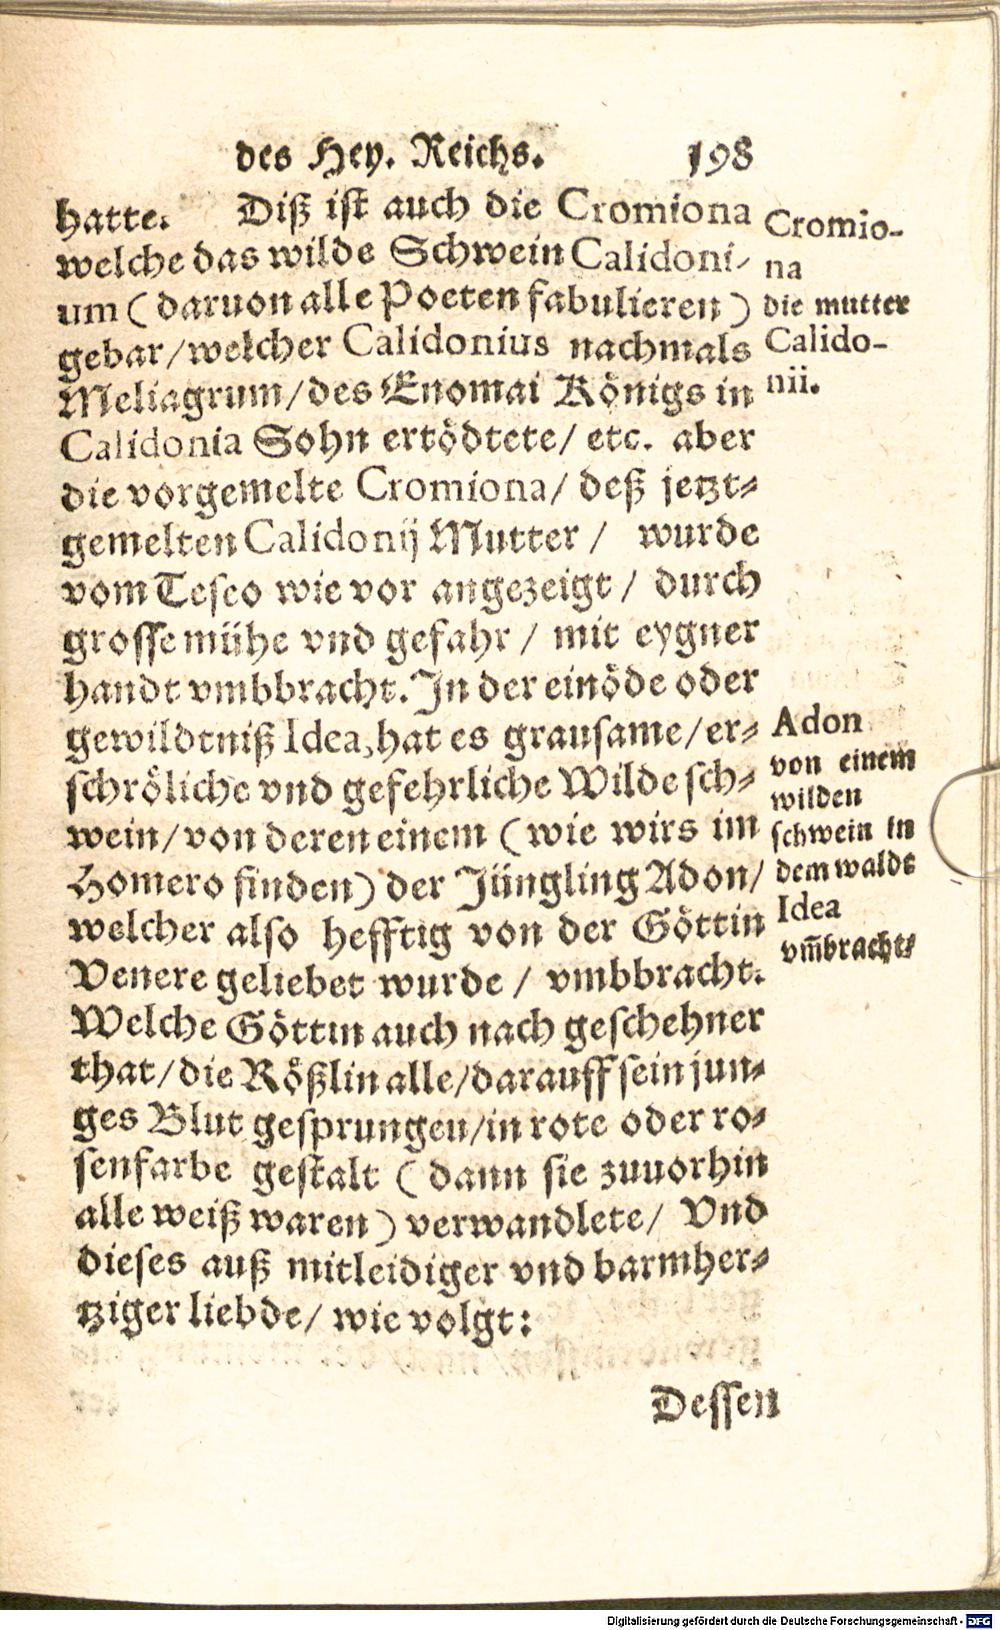 des Hey. Reichs. 198
hatte. Diß ist auch die Cromiona
welche das wilde Schwein Calidoni-
um (daruon alle Poeten fabulieren)
gebar/welcher Calidonius nachmals
Meliagrum/des Enomai Königs in
Calidonia Sohn ertödtete/ etc. aber
die vorgemelte Cromiona/ deß jetzt-
gemelten Calidonij Mutter / wurde
vom Teseo wie vor angezeigt / durch
grosse mühe vnd gefahr / mit eygner
handt vmbbracht. In der einöde oder
gewildtniß Idea, hat es grausame/er-
schröliche vnd gefehrliche Wilde sch-
wein/von deren einem (wie wirs im
Homero finden) der Jüngling Adon/
welcher also hefftig von der Göttin
Venere geliebet wurde / vmbbracht.
Welche Göttin auch nach geschehner
that/die Rößlin alle/darauff sein jun-
ges Blut gesprungen/in rote oder ro-
senfarbe gestalt (dann sie zuuorhin
alle weiß waren) verwandlete/ Vnd
dieses auß mitleidiger vnd barmher-
tziger liebde/ wie volgt:
Dessen
Cromio-
na
die mutter
Calido-
nii.
Adon
von einem
wilden
schwein in
dem walde
Idea
vm̄bracht.
Digitalisierung gefördert durch die Deutsche Forschungsgemeinschaft - DFG